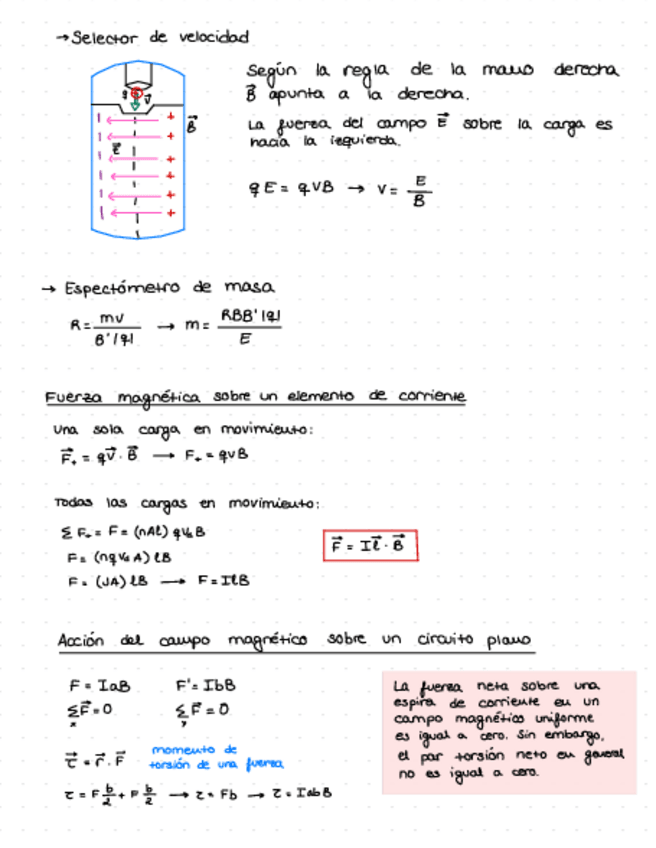 → Selector de velocidad
Según la regla de la mano derecha
B⃗ apunta a la derecha.
La fuerza del campo E⃗ sobre la carga es
hacia la izquierda.
q
v⃗
B⃗
E⃗
qE = qVB → V = E/B
→ Espectómetro de masa
R = mv/B'|q| → m = RBB'|q|/E
Fuerza magnética sobre un elemento de corriente
Una sola carga en movimiento:
F⃗₊ = qV⃗ · B⃗ → F₊ = qvB
Todas las cargas en movimiento:
Σ F₊ = F = (nAl) qVdB
F = (nqVdA) lB
F = (JA) lB → F = IlB
F⃗ = Il⃗ · B⃗
Acción del campo magnético sobre un circuito plano
F = IaB F' = IbB
ΣxF⃗ = 0 ΣyF⃗ = 0
τ⃗ = r⃗ · F⃗ momento de
torsión de una fuerza
τ = F b/2 + F b/2 → τ = Fb → τ = IabB
La fuerza neta sobre una
espira de corriente en un
campo magnético uniforme
es igual a cero. Sin embargo,
el par torsión neto en general
no es igual a cero.